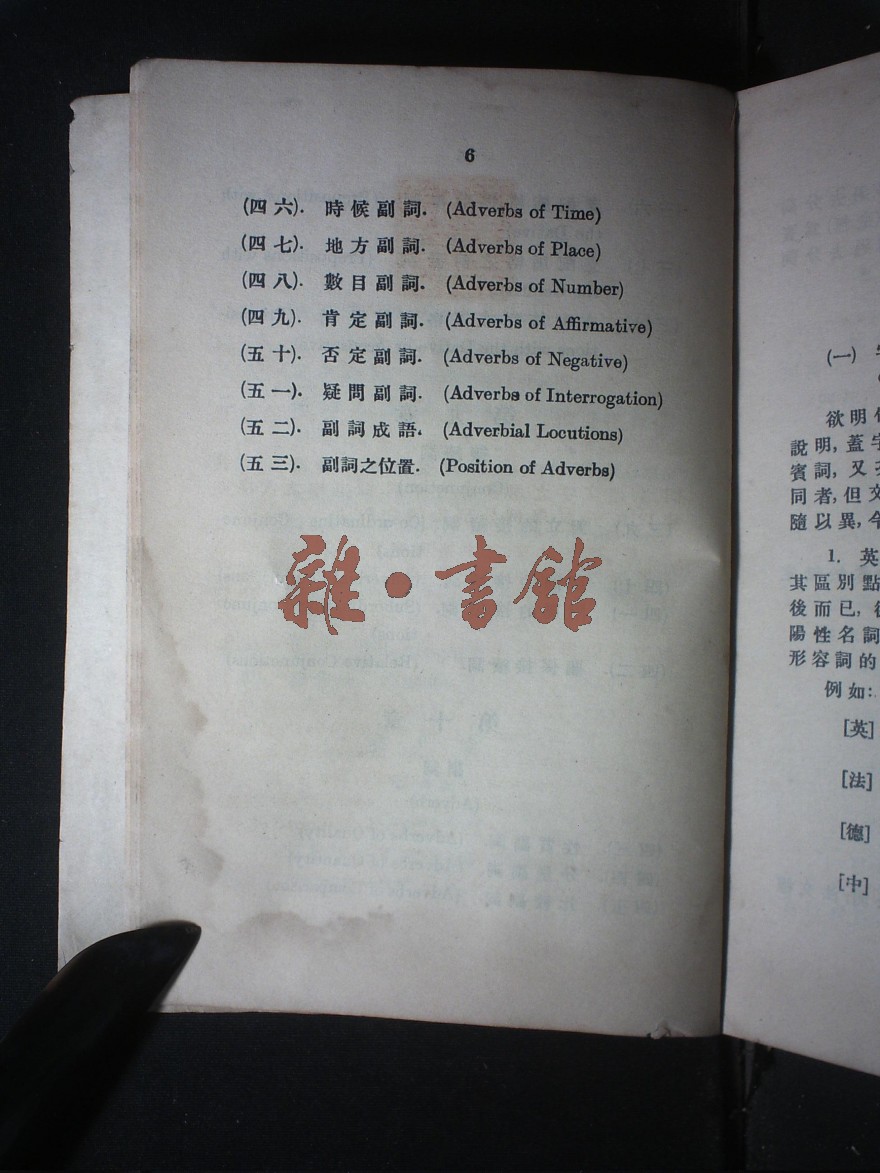 6
(四六). 時候副詞. (Adverbs of Time)
(四七). 地方副詞. (Adverbs of Place)
(四八). 數目副詞. (Adverbs of Number)
(四九). 肯定副詞. (Adverbs of Affirmative)
(五十). 否定副詞. (Adverbs of Negative)
(五一). 疑問副詞. (Adverbs of Interrogation)
(五二). 副詞成語. (Adverbial Locutions)
(五三). 副詞之位置. (Position of Adverbs)
雜·書館
(一)
欲明
說明,蓋
賓詞,又
同者,但文
隨以異,令
1. 英
其區別點
後而已,
陽性名詞
形容詞的
例如:
[英]
[法]
[德]
[中]